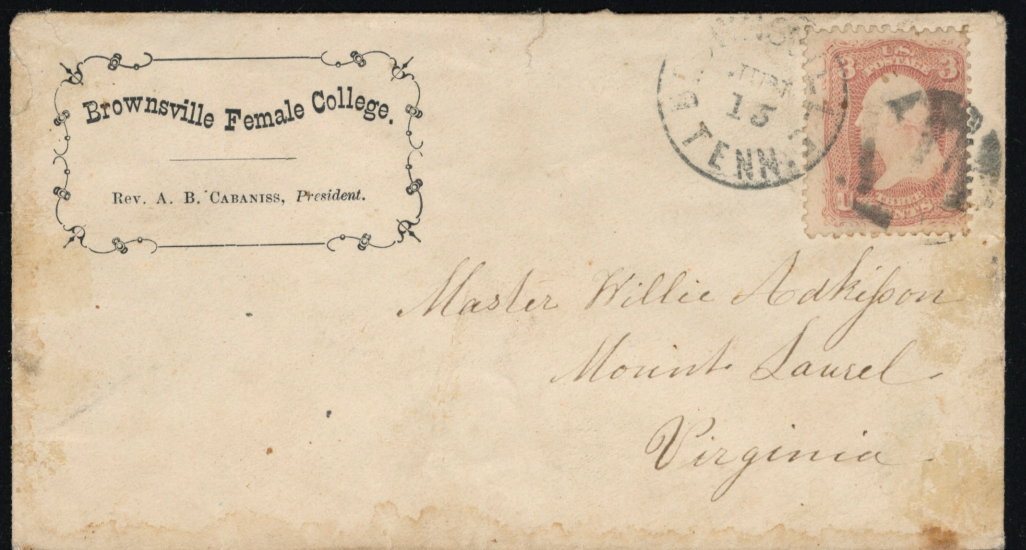 Brownsville Female College.
Rev. A. B. CABANISS, President.
TENN.
15
U.S.
POSTAGE
3 3
CENTS
Master Willie Adkiſson
Mount Laurel
Virginia